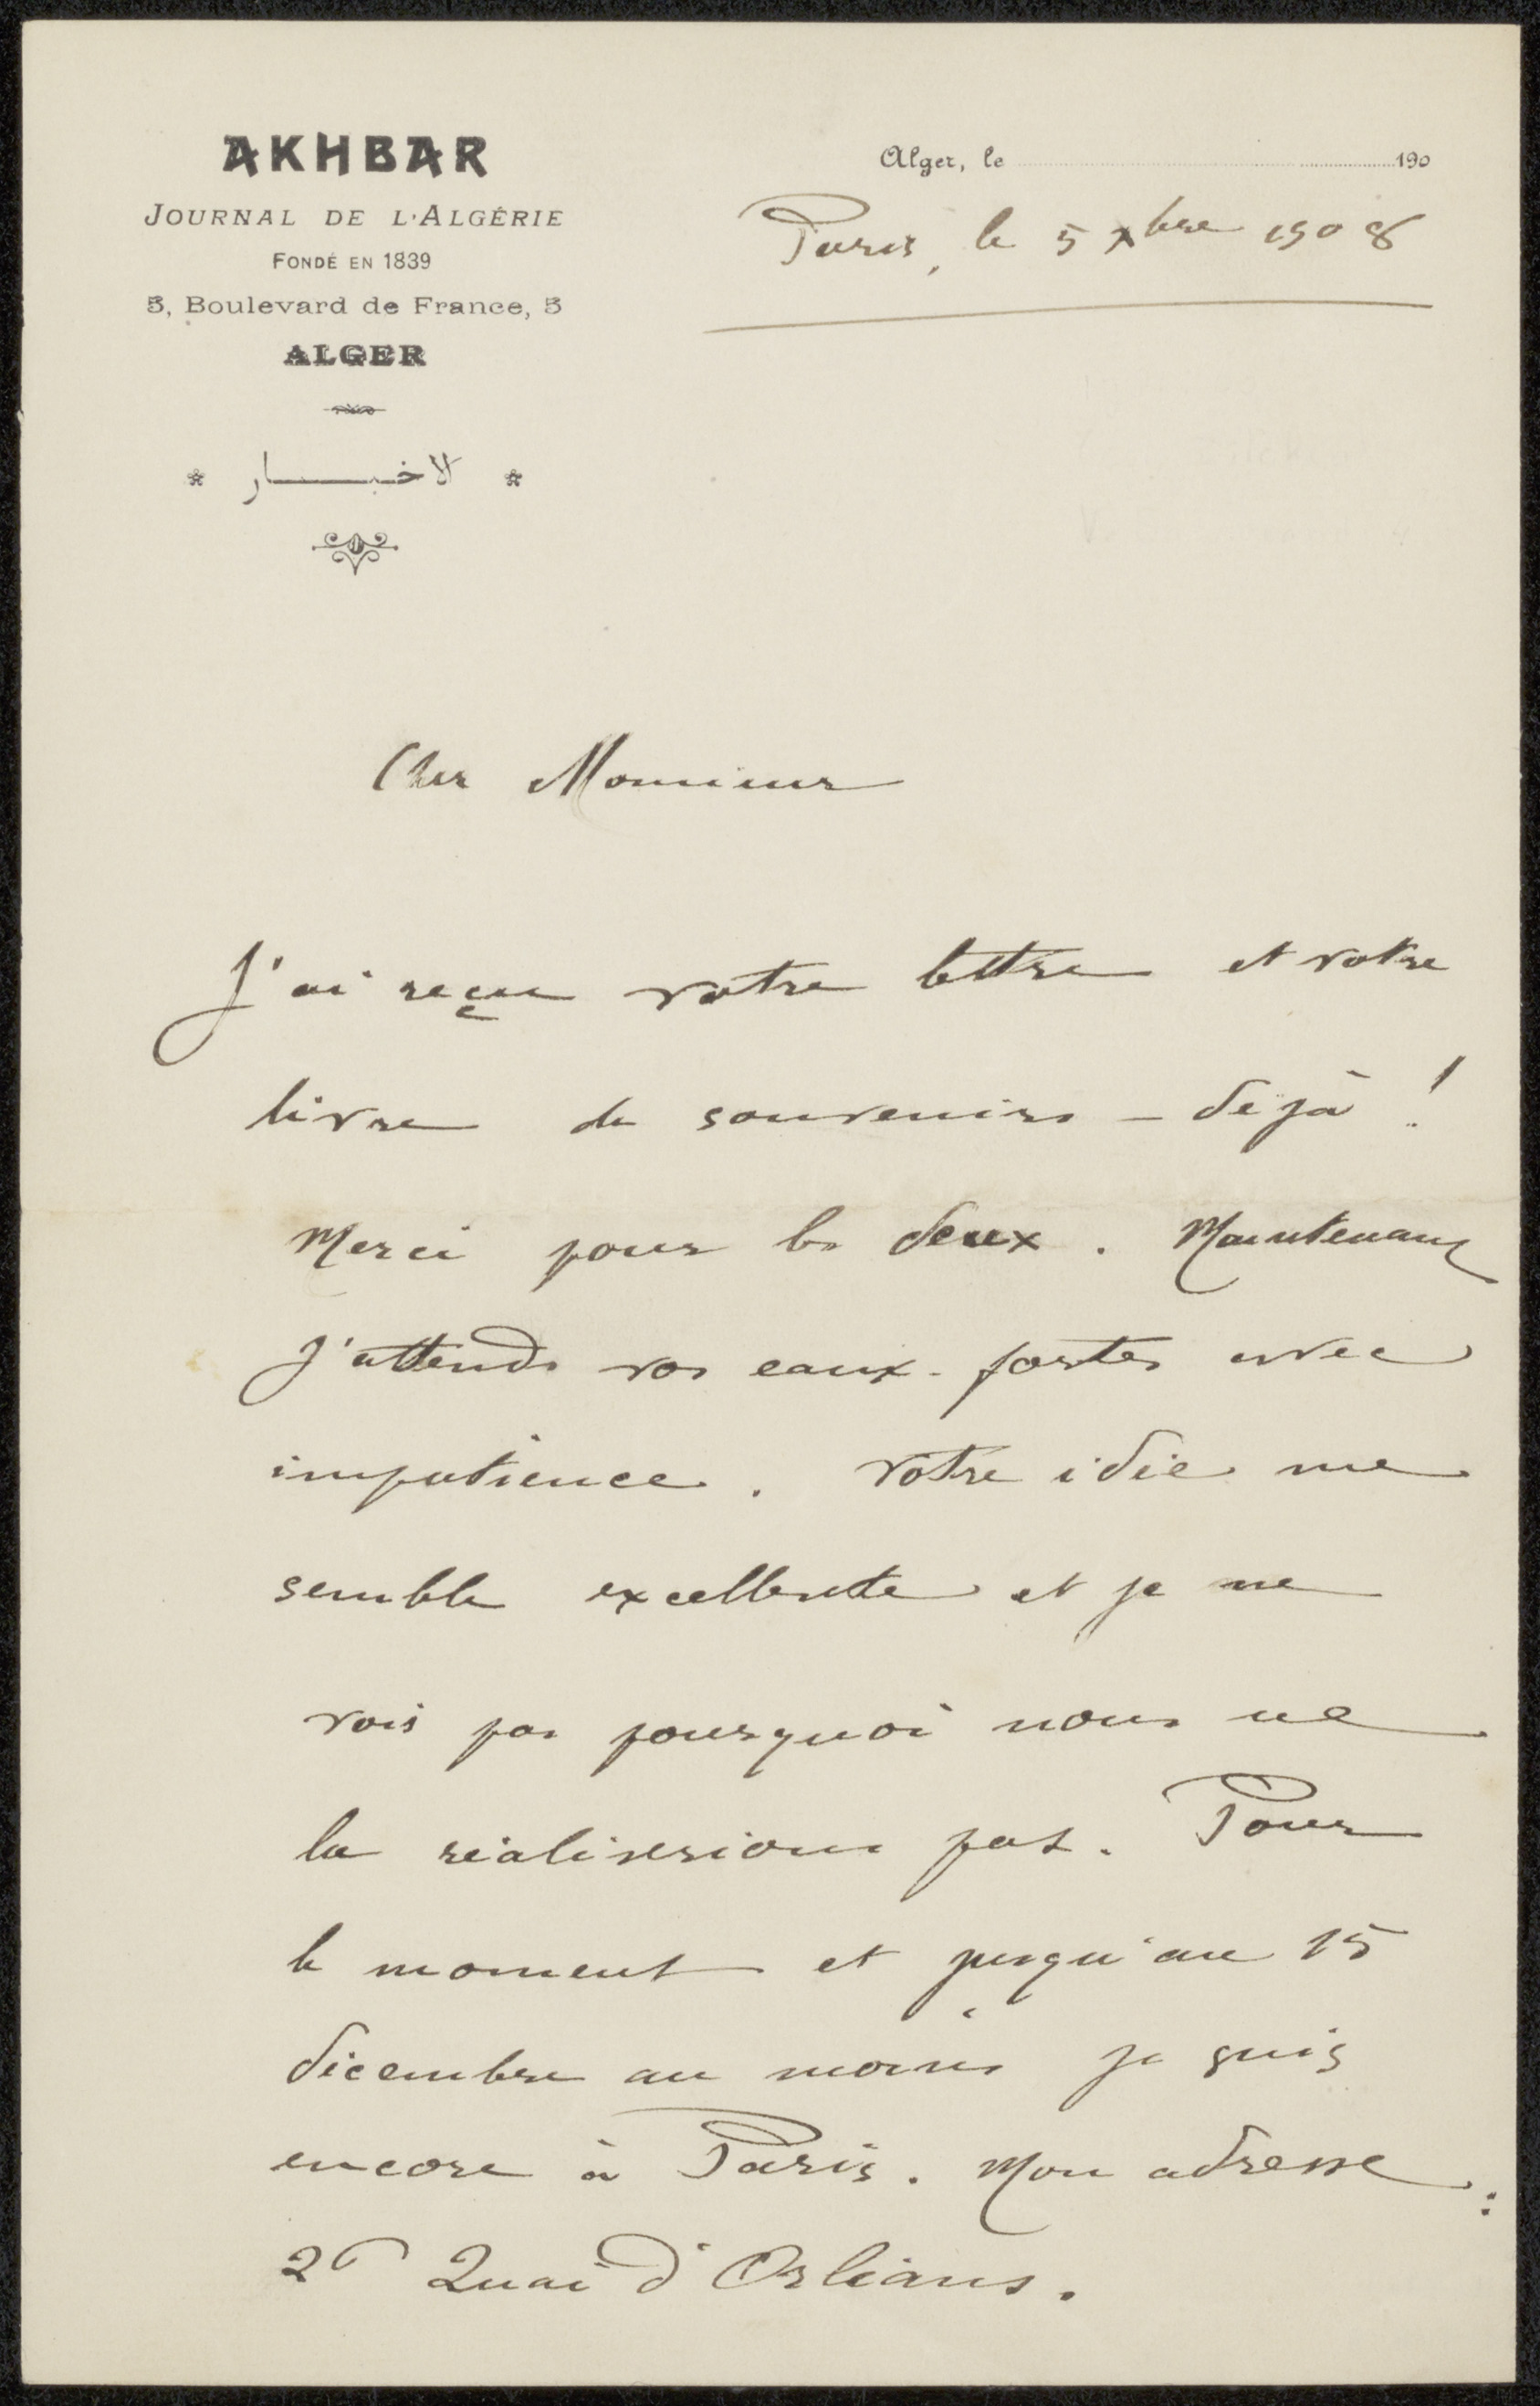 AKHBAR
JOURNAL DE L'ALGÉRIE
FONDÉ EN 1839
5, Boulevard de France, 5
ALGER
الاخبار
Alger, le 190
Paris, le 5 Xbre 1908
Cher Monsieur
J'ai reçu votre lettre et votre
livre de souvenirs - déjà !
Merci pour les deux. Maintenant
j'attends vos eaux-fortes avec
impatience. Votre idée me
semble excellente et je ne
vois pas pourquoi nous ne
la réaliserions pas. Pour
le moment et jusqu'au 15
décembre au moins je suis
encore à Paris. Mon adresse :
26 Quai d'Orléans.